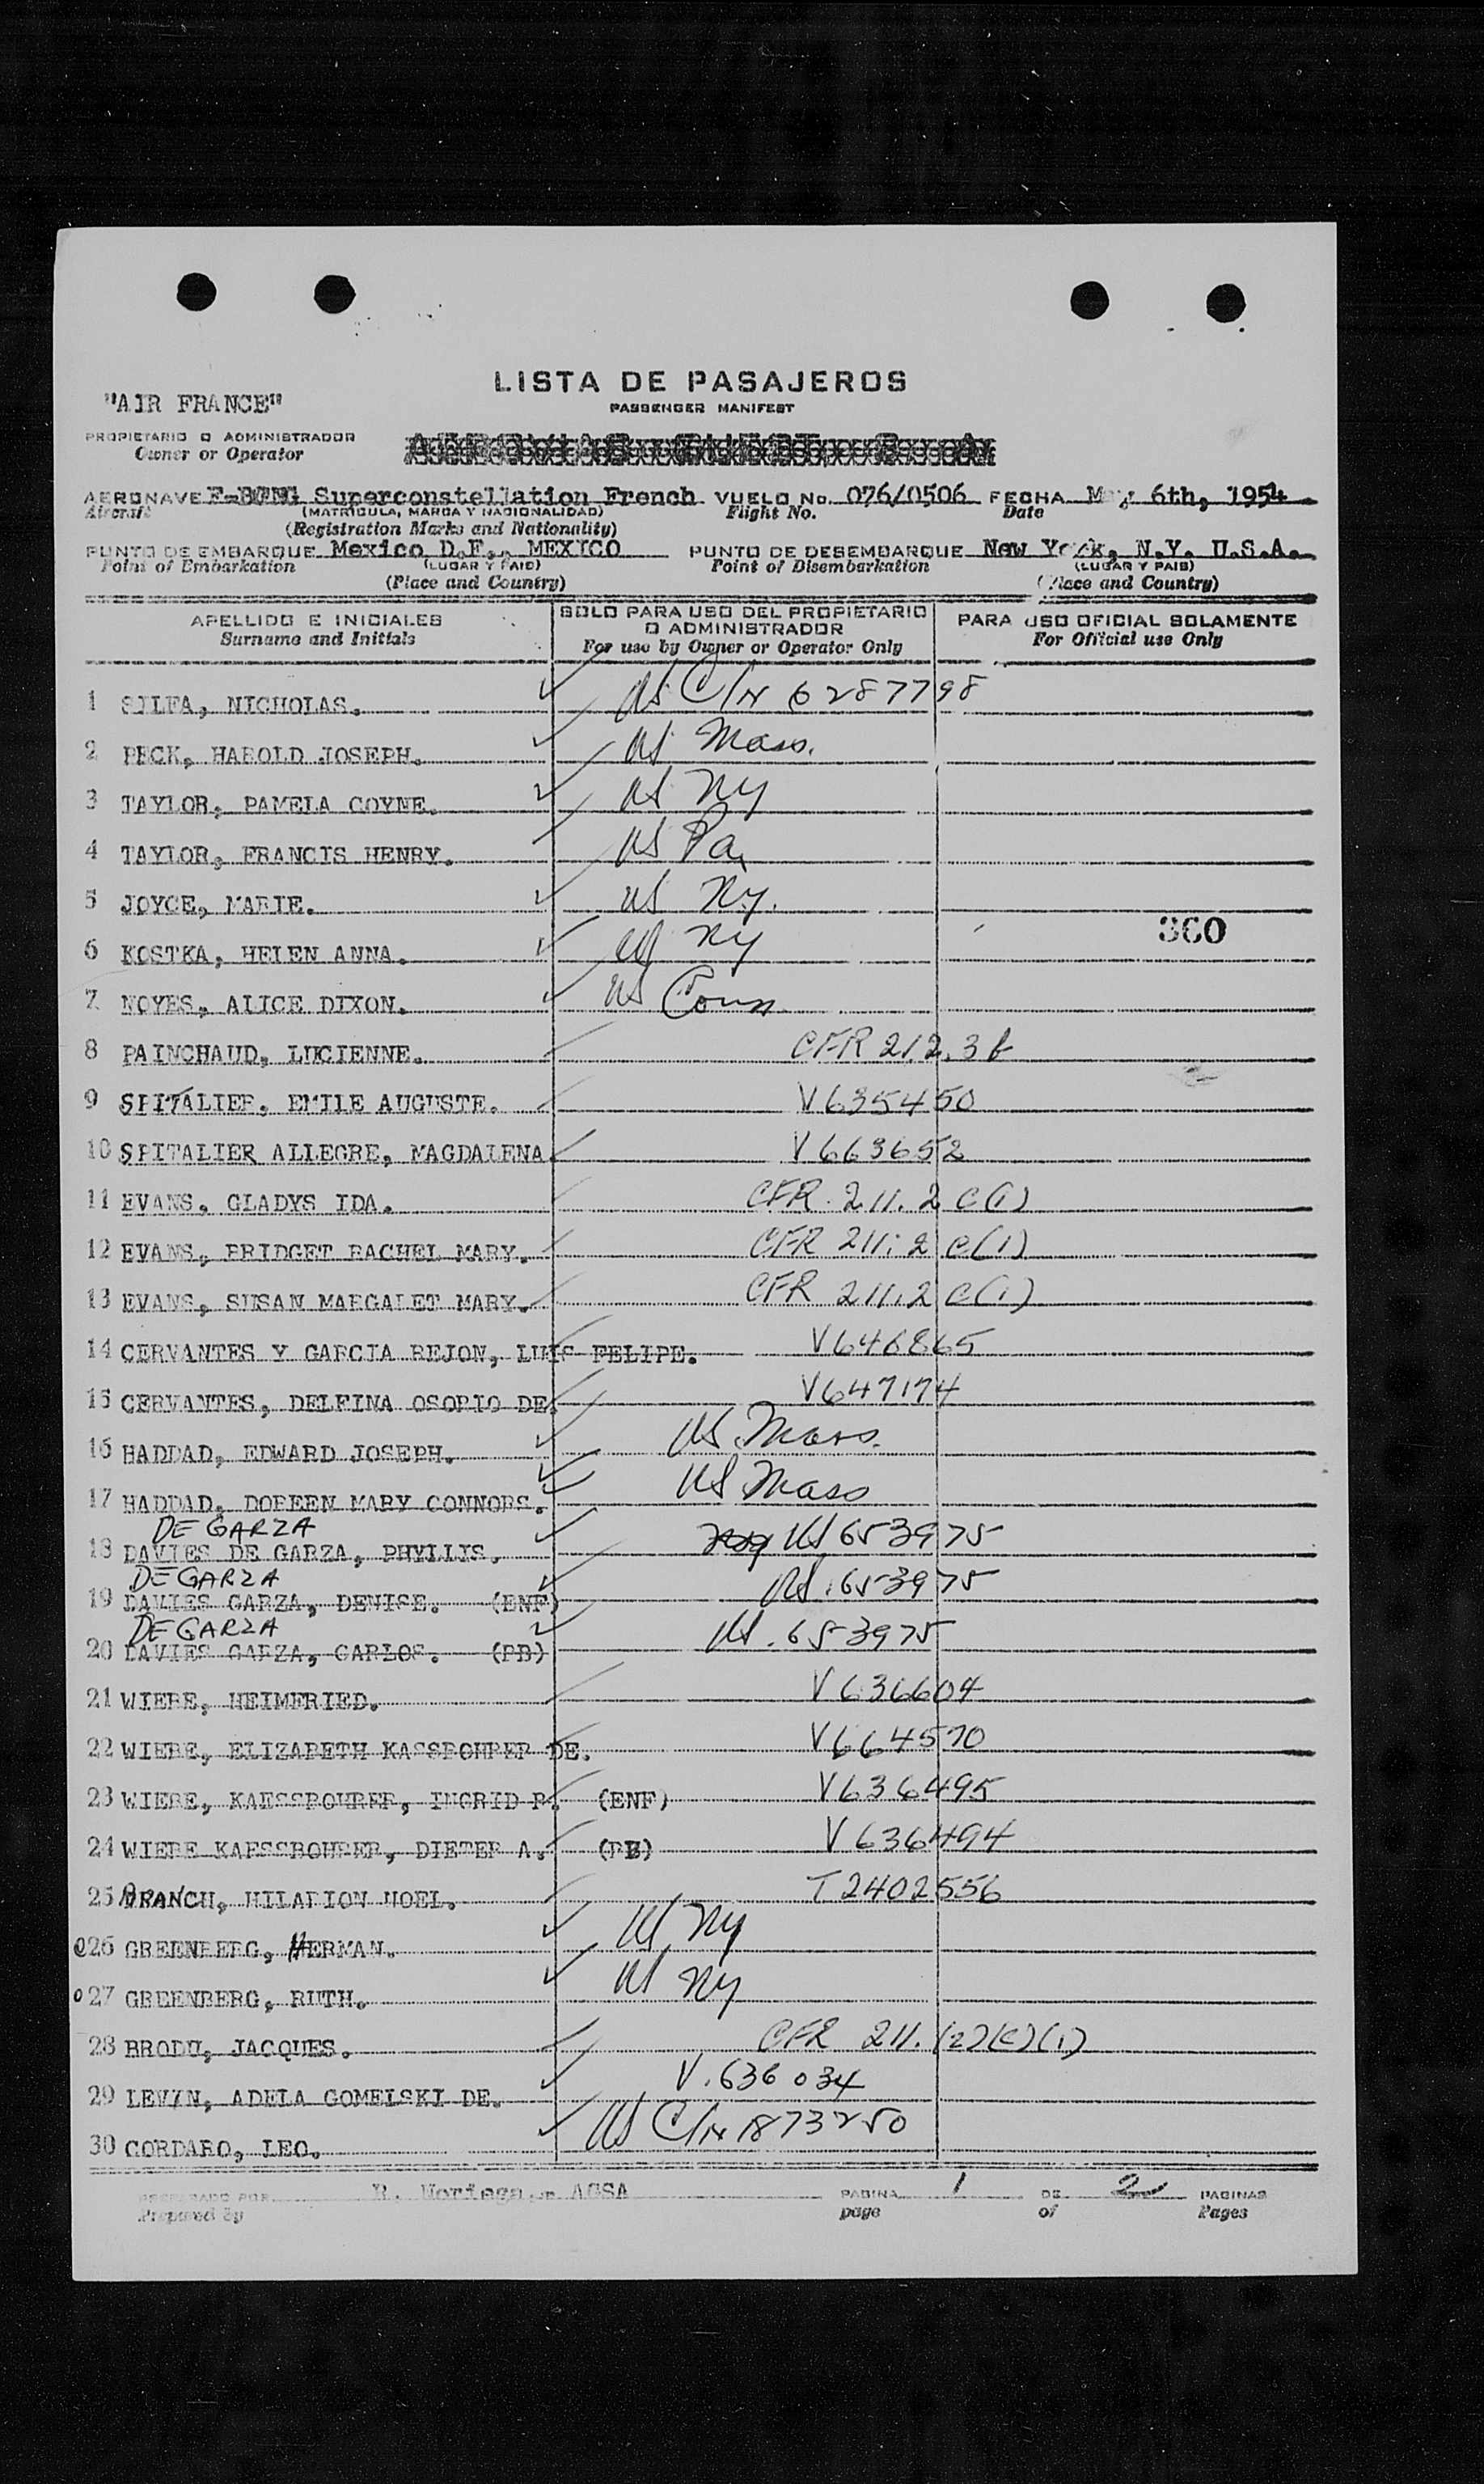 LISTA DE PASAJEROS
"AIR FRANCE"
PASSENGER MANIFEST
PROPIETARIO O ADMINISTRADOR
Owner or Operator
AERONAVE Superconstellation French VUELO No. 076/0506 FECHA May 6th, 1954
Aircraft (MATRICULA, MARCA Y NACIONALIDAD) Flight No. Date
(Registration Marks and Nationality)
PUNTO DE EMBARQUE Mexico D.F., MEXICO PUNTO DE DESEMBARQUE New York, N.Y. U.S.A.
Point of Embarkation (LUGAR Y PAIS) Point of Disembarkation (LUGAR Y PAIS)
(Place and Country) (Place and Country)
APELLIDO E INICIALES SOLO PARA USO DEL PROPIETARIO O ADMINISTRADOR PARA USO OFICIAL SOLAMENTE
Surname and Initials For use by Owner or Operator Only For Official use Only
1 SILFA, NICHOLAS. US C/N 6287798
2 PECK, HAROLD JOSEPH. US Mass.
3 TAYLOR, PAMELA COYNE. US NY
4 TAYLOR, FRANCIS HENRY. US Pa,
5 JOYCE, MARIE. US NY.
360
6 KOSTKA, HELEN ANNA. US NY
7 NOYES, ALICE DIXON. US Conn
8 PAINCHAUD, LUCIENNE. CFR 212.3 b
9 SPITALIER, EMILE AUGUSTE. V635450
10 SPITALIER ALLEGRE, MAGDALENA. V663652
11 EVANS, GLADYS IDA. CFR 211.2 C(1)
12 EVANS, BRIDGET RACHEL MARY. CFR 211.2 C(1)
13 EVANS, SUSAN MARGARET MARY. CFR 211.2 C(1)
14 CERVANTES Y GARCIA REJON, LUIS FELIPE. V646865
15 CERVANTES, DELFINA OSORIO DE. V647174
16 HADDAD, EDWARD JOSEPH. US Mass.
17 HADDAD, DOREEN MARY CONNORS. US Mass
DE GARZA
18 DAVIES DE GARZA, PHYLLIS. US 653975
DE GARZA
19 DAVIES GARZA, DENISE. (ENF) US.653975
DE GARZA
20 DAVIES GARZA, CARLOS. (BB) US.653975
21 WIEBE, HEIMFRIED. V636604
22 WIEBE, ELIZABETH KASSBOHRER DE. V664570
23 WIEBE, KAESSBOHRER, INGRID R. (ENF) V636495
24 WIEBE KAESSBOHRER, DIETER A. (BB) V636494
25 BRANCH, HILARION NOEL. T2402556
26 GREENBERG, HERMAN. US NY
27 GREENBERG, RUTH. US NY
28 BRODU, JACQUES. CFR 211.(2)(C)(1)
29 LEVIN, ADELA GOMELSKI DE. V.636034
30 CORDARO, LEO. US C/N 1873250
PREPARADO POR R. Noriega - AGSA PAGINA 1 DE 2 PAGINAS
Prepared by page of Pages